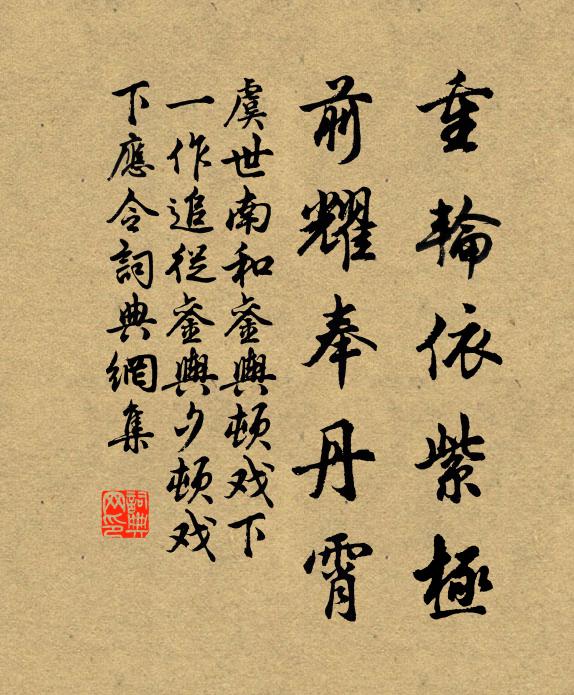 重輪依紫極
前耀奉丹霄
虞世南和銮輿頓戏下
一作追從銮輿夕頓戏
下應令詞典網集
詞典网印